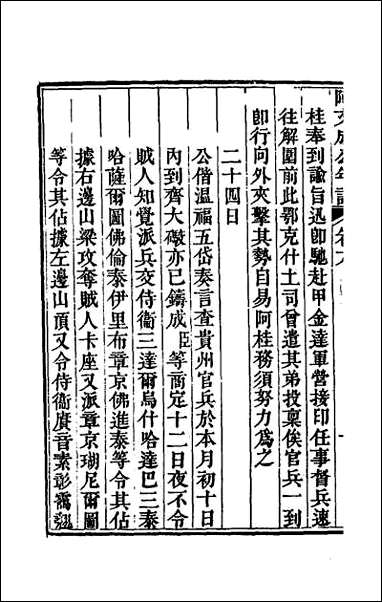 阿文成公年譜 卷六
桂奉到諭旨迅卽馳赴甲金達軍營接印任事督兵速
往解圍前此鄂克什土司曾遣其弟投稟俟官兵一到
卽行向外夾擊其勢自易阿桂務須努力爲之
二十四日
公偕溫福五岱奏言查貴州官兵於本月初十日
內到齊大礮亦已鑄成臣等商定十二日夜不令
賊人知覺派兵交侍衞三達爾烏什哈達巴三泰
哈薩爾圖佛倫泰伊里布章京佛進泰等令其佔
據右邊山梁攻奪賊人卡座又派章京瑚尼爾圖
等令其佔據左邊山頂又令侍衞賡音素彰靄